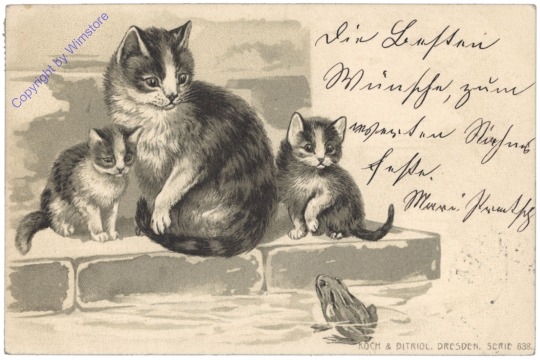 Copyright by Wimstore
Die Besten
Wünsche, zum
werten
Feste.
Mari
KOCH & BITRIOL. DRESDEN. SERIE 638.